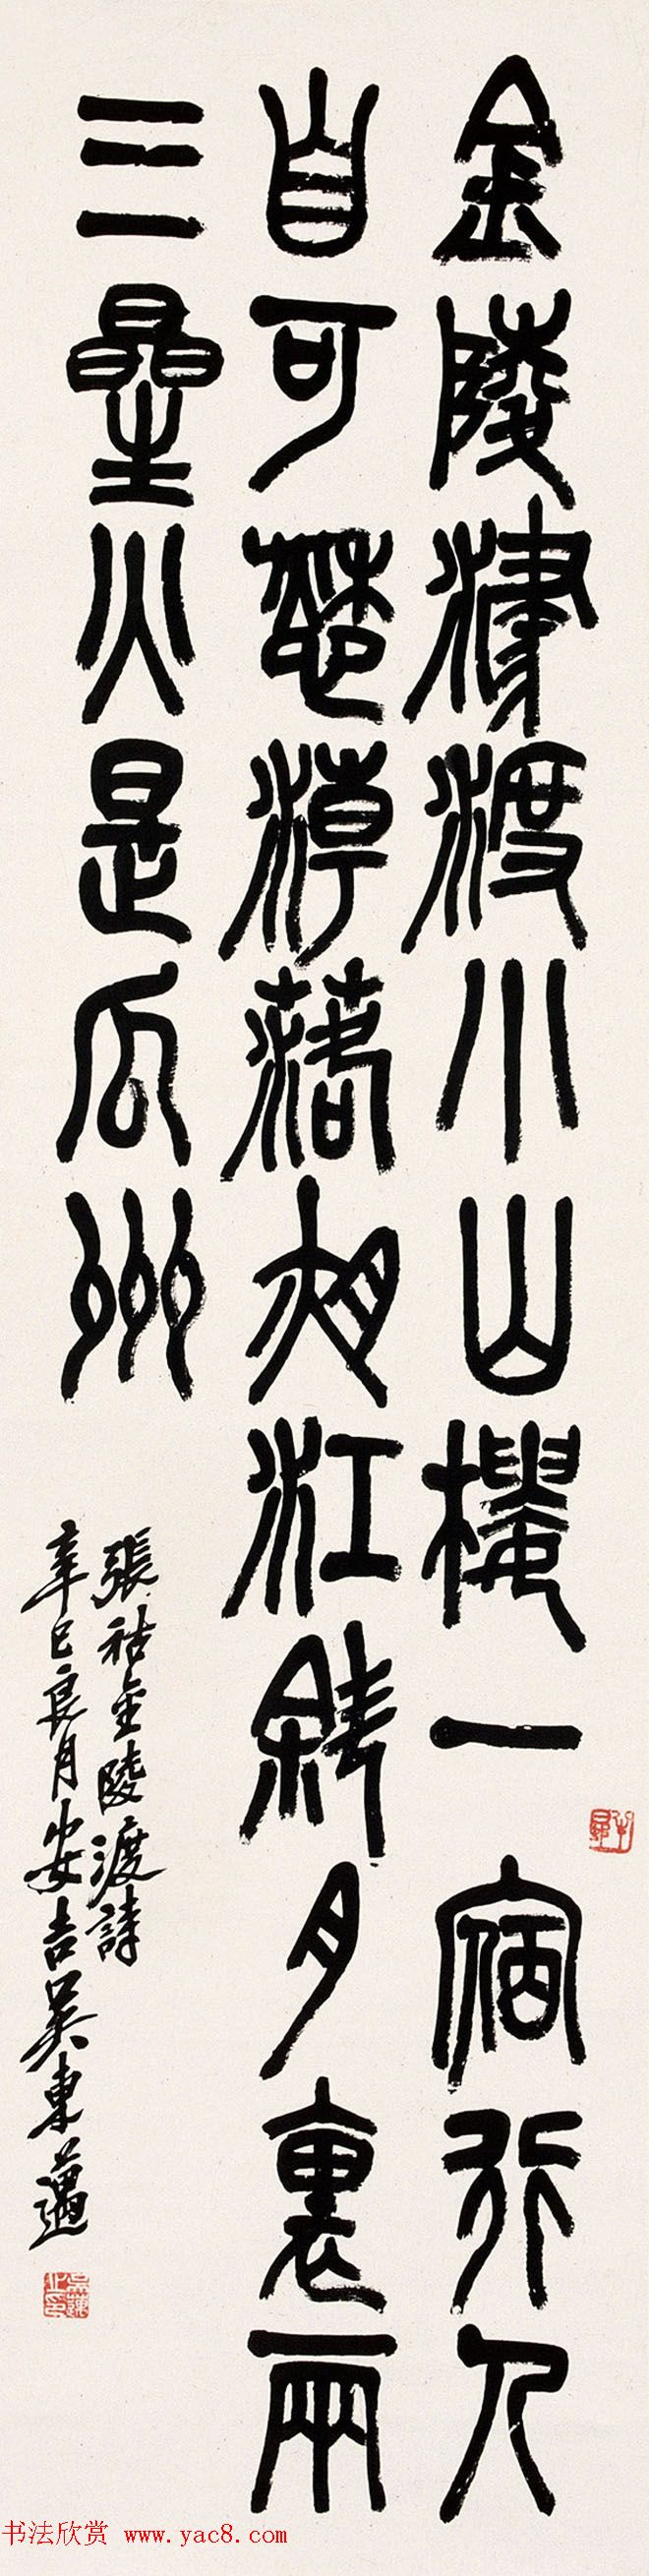 金陵津渡小山樓一宿行人
自可愁潮落夜江斜月裏兩
三星火是瓜州
張祜金陵渡詩
辛巳良月安吉吳東邁
书法欣赏 www.yac8.com